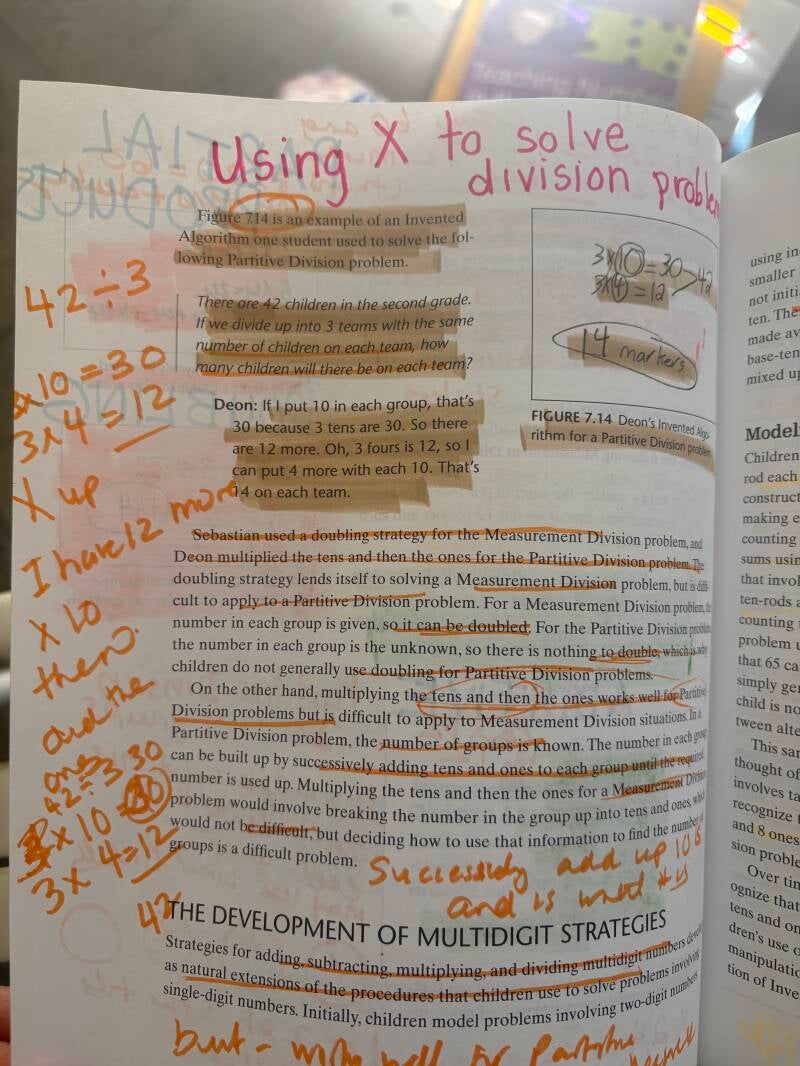 Using X to solve
division problem
Figure 7.14 is an example of an Invented
Algorithm one student used to solve the fol-
lowing Partitive Division problem.
There are 42 children in the second grade.
If we divide up into 3 teams with the same
number of children on each team, how
many children will there be on each team?
Deon: If I put 10 in each group, that's
30 because 3 tens are 30. So there
are 12 more. Oh, 3 fours is 12, so I
can put 4 more with each 10. That's
14 on each team.
3×10=30
3×4=12
>42
14 markers
FIGURE 7.14 Deon's Invented Algo-
rithm for a Partitive Division problem
42÷3
3×10=30
3×4=12
X up
I have 12 more
X 10
then
and the
ones
42÷3 30
3×10=30
3×4=12
42
Sebastian used a doubling strategy for the Measurement Division problem, and
Deon multiplied the tens and then the ones for the Partitive Division problem. The
doubling strategy lends itself to solving a Measurement Division problem, but is diffi-
cult to apply to a Partitive Division problem. For a Measurement Division problem, the
number in each group is given, so it can be doubled. For the Partitive Division problem,
the number in each group is the unknown, so there is nothing to double, which is why
children do not generally use doubling for Partitive Division problems.
On the other hand, multiplying the tens and then the ones works well for Partitive
Division problems but is difficult to apply to Measurement Division situations. In a
Partitive Division problem, the number of groups is known. The number in each group
can be built up by successively adding tens and ones to each group until the required
number is used up. Multiplying the tens and then the ones for a Measurement Division
problem would involve breaking the number in the group up into tens and ones, which
would not be difficult, but deciding how to use that information to find the number of
groups is a difficult problem.
Successively add up 10s
and is what
THE DEVELOPMENT OF MULTIDIGIT STRATEGIES
Strategies for adding, subtracting, multiplying, and dividing multidigit numbers develop
as natural extensions of the procedures that children use to solve problems involving
single-digit numbers. Initially, children model problems involving two-digit numbers
but - well for Partitive
using in
smaller
not initi
ten. The
made av
base-ten
mixed up
Modeli
Children
rod each
construct
making e
counting
sums usin
that invol
ten-rods a
counting
problem u
that 65 ca
simply ge
child is no
tween alte
This sar
thought of
involves ta
recognize t
and 8 ones
sion proble
Over tin
ognize that
tens and on
dren's use o
manipulatio
tion of Inve